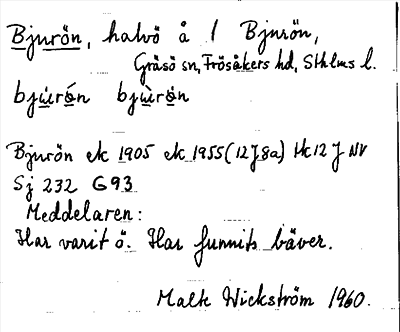 Bjurön, halvö å 1 Bjurön,
Gräsö sn, Frösåkers hd, Sthlms l.
bjùrón bjùrön
Bjurön ek 1905 ek 1955 (12J8a) Hc12J NV
Sj 232 G93
Meddelaren:
Har varit ö. Har funnits bäver.
Malte Wickström 1960.